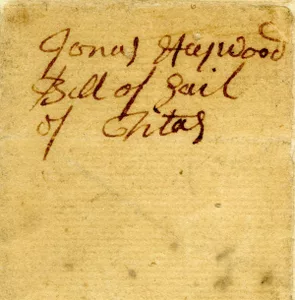 Jonas Heywood
Bill of Sail
of Titas